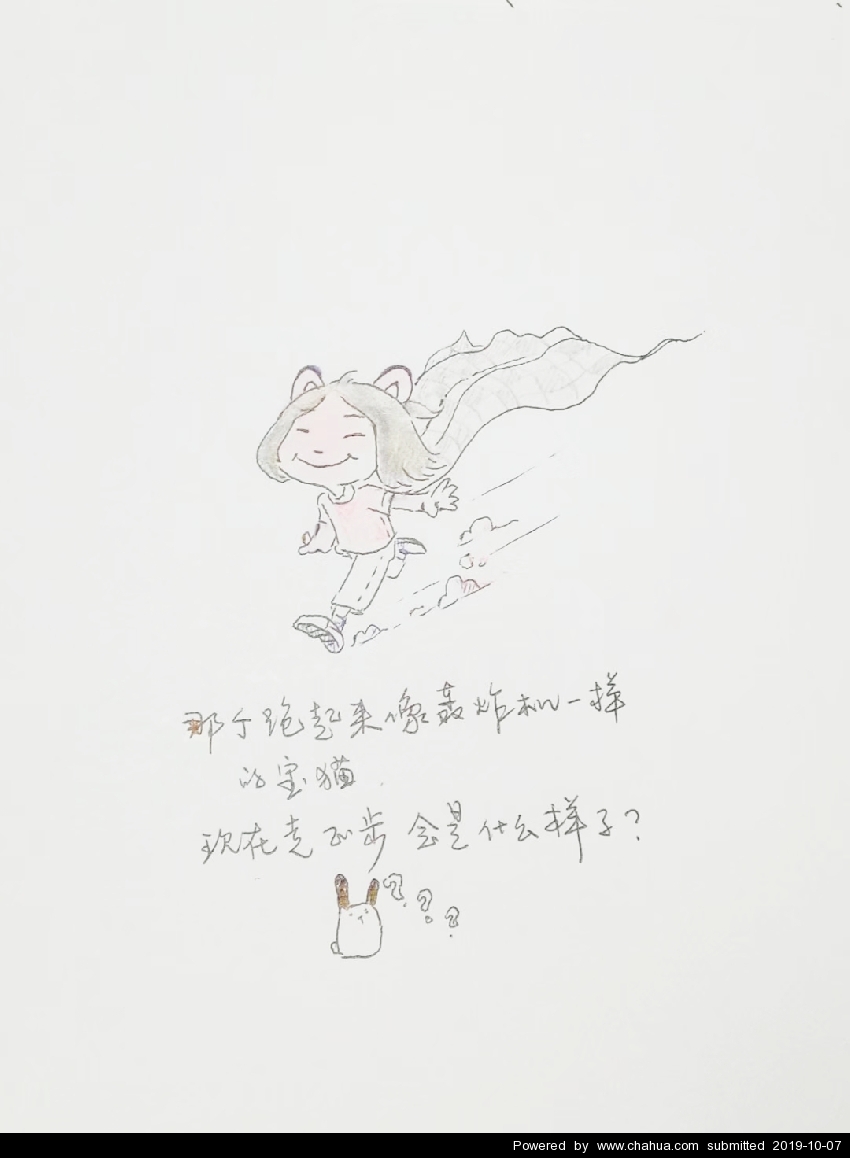 那个跑起来像轰炸机一样
的宝猫.
现在走正步 会是什么样子?
???
Powered by www.chahua.com submitted 2019-10-07